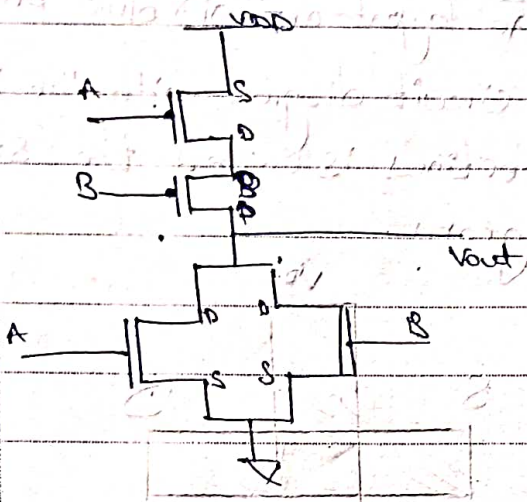 VDD
A
S
D
B
D
Vout
A
D
D
B
S
S